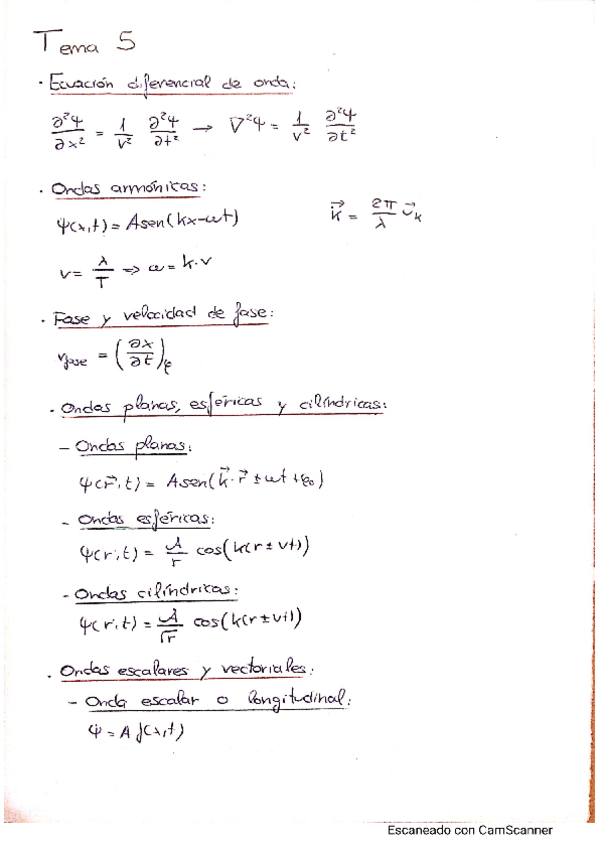 Tema 5
· Ecuación diferencial de onda:
∂²Ψ/∂x² = 1/v² ∂²Ψ/∂t² → ∇²Ψ = 1/v² ∂²Ψ/∂t²
· Ondas armónicas:
Ψ(x,t) = A sen(kx-ωt)
k⃗ = 2π/λ u⃗ₖ
v = λ/T ⇒ ω = k·v
· Fase y velocidad de fase:
v_fase = (∂x/∂t)_φ
· Ondas planas, esféricas y cilíndricas:
- Ondas planas:
Ψ(r⃗,t) = A sen(k⃗·r⃗ ± ωt + φ₀)
- Ondas esféricas:
Ψ(r,t) = A/r cos(k(r ± vt))
- Ondas cilíndricas:
Ψ(r,t) = A/√r cos(k(r ± vt))
· Ondas escalares y vectoriales:
- Onda escalar o longitudinal:
Ψ = A f(x,t)
Escaneado con CamScanner